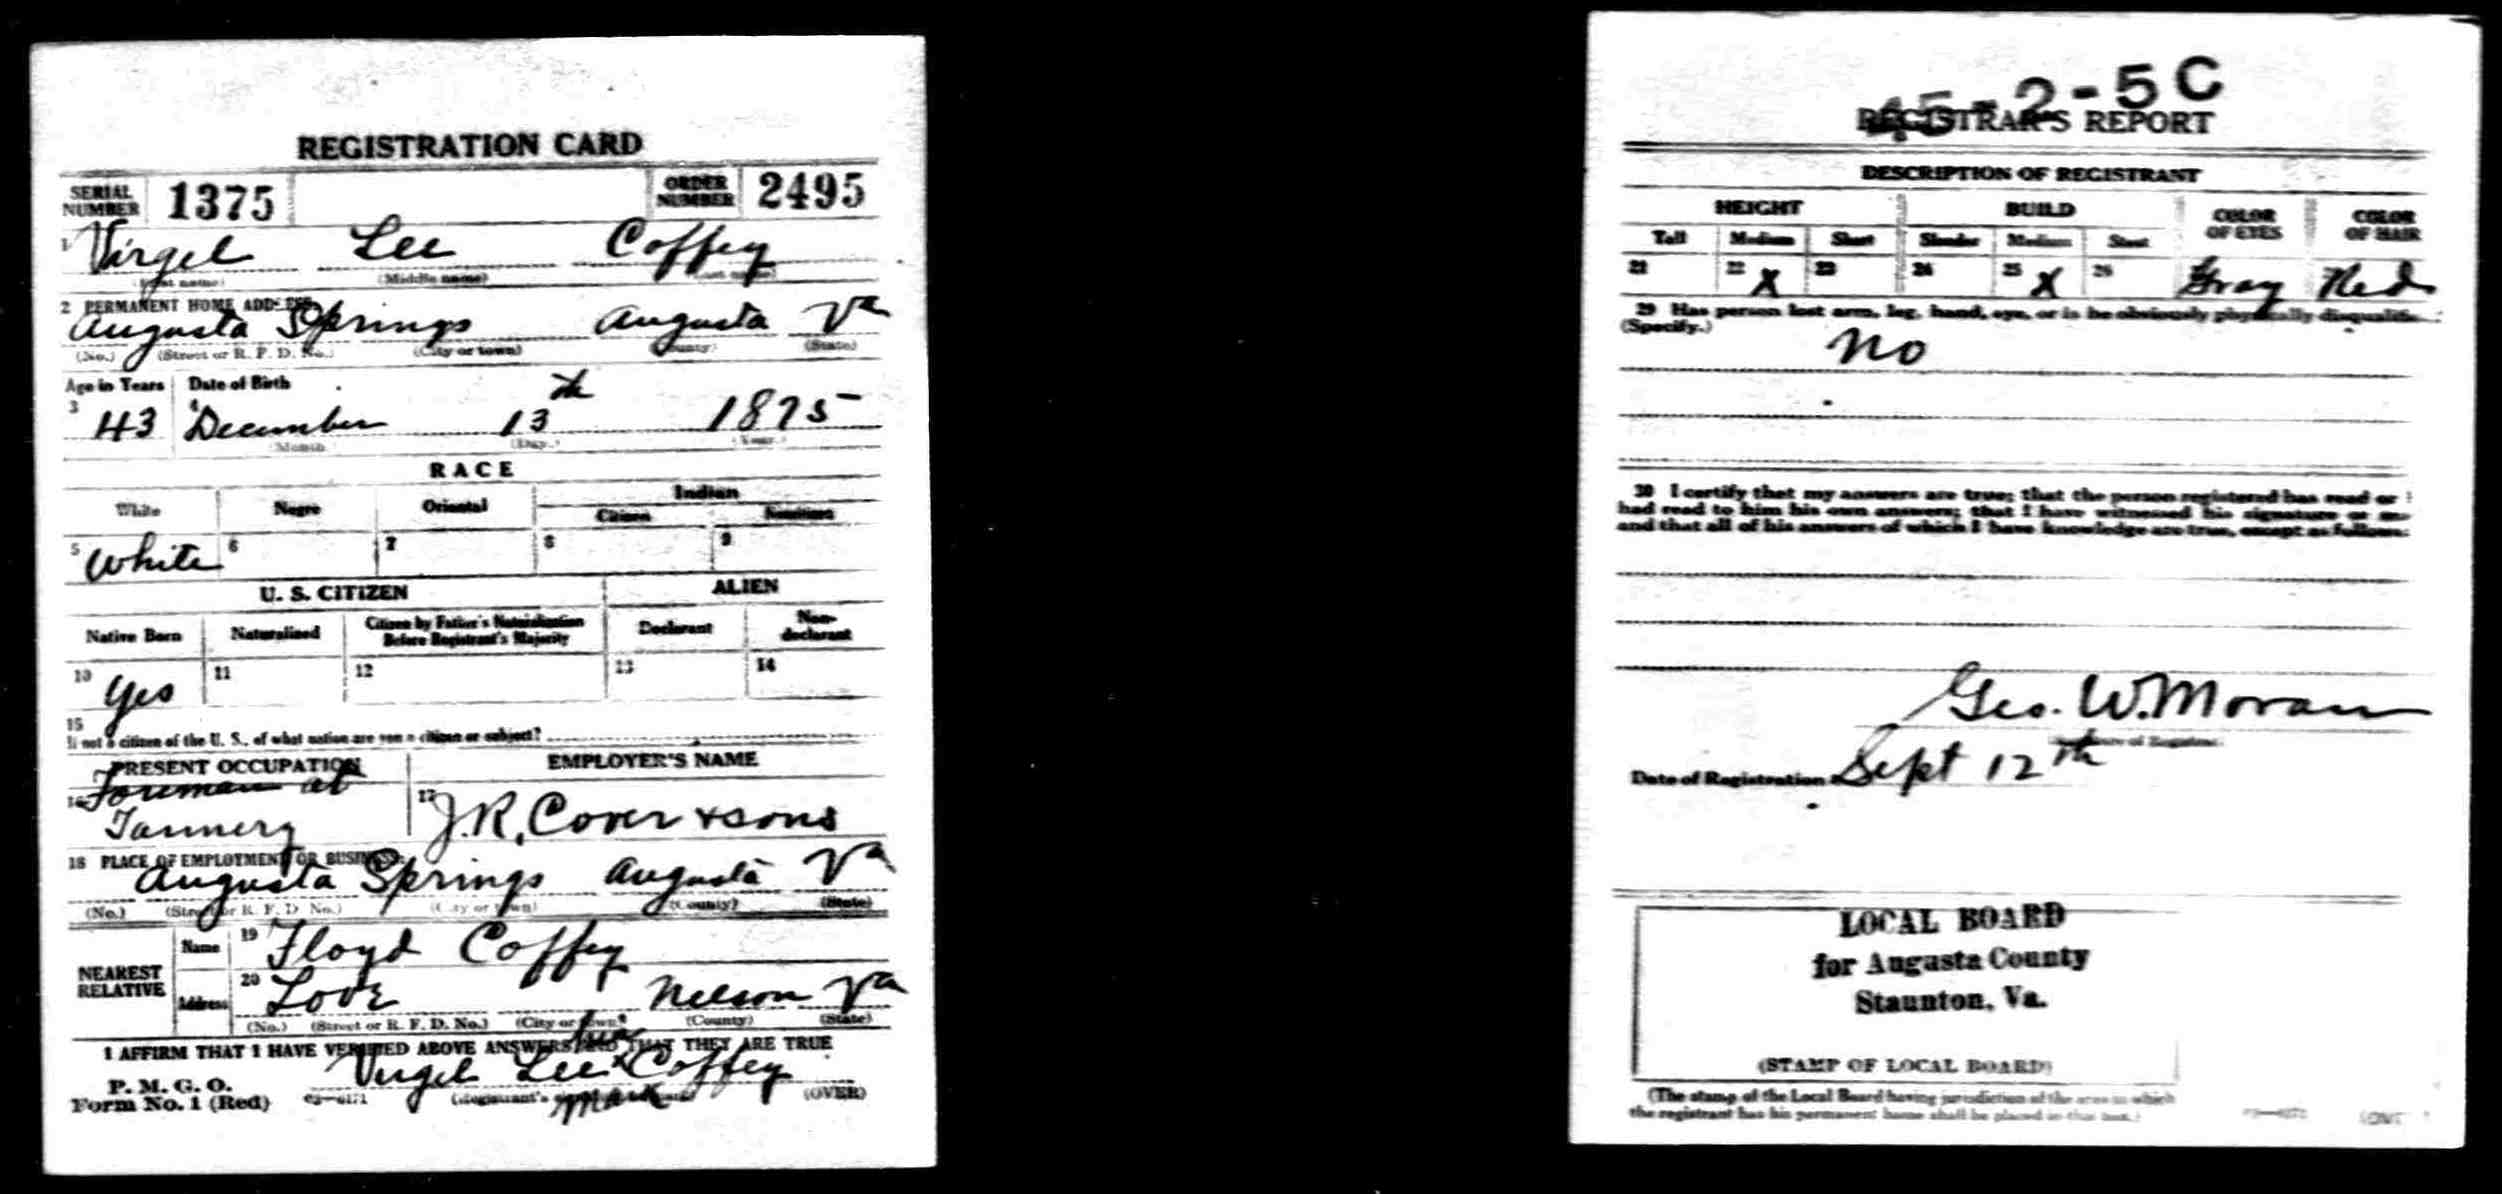 REGISTRATION CARD
SERIAL NUMBER 1375 ORDER NUMBER 2495
1 Virgel Lee Coffey
(First name) (Middle name) (Last name)
2 PERMANENT HOME ADDRESS
Augusta Springs Augusta Va
(No.) (Street or R. F. D. No.) (City or town) (County) (State)
Age in Years Date of Birth
3 43 4 December 13th 1875
(Month) (Day.) (Year.)
RACE
White Negro Oriental Indian
Citizen
5 White 6 7 8 9
U. S. CITIZEN ALIEN
Native Born Naturalized Citizen by Father's Naturalization Before Registrant's Majority Declarant Non-declarant
10 Yes 11 12 13 14
15
If not a citizen of the U. S., of what nation are you a citizen or subject?
PRESENT OCCUPATION EMPLOYER'S NAME
16 Foreman at 17 J.R. Cover & sons
Tannery
18 PLACE OF EMPLOYMENT OR BUSINESS:
Augusta Springs Augusta Va
(No.) (Street or R. F. D. No.) (City or town) (County) (State)
NEAREST RELATIVE Name 19 Floyd Coffey
Address 20 Love Nelson Va
(No.) (Street or R. F. D. No.) (City or town) (County) (State)
I AFFIRM THAT I HAVE VERIFIED ABOVE ANSWERS AND THAT THEY ARE TRUE
his
P. M. G. O. Virgel Lee x Coffey
Form No. 1 (Red) 03—6171 mark (OVER)
45-2-5 C
REGISTRAR'S REPORT
DESCRIPTION OF REGISTRANT
HEIGHT BUILD COLOR OF EYES COLOR OF HAIR
Tall Medium Short Slender Medium Stout
21 22 X 23 24 25 X 26 Gray Red
29 Has person lost arm, leg, hand, eye, or is he obviously physically disqualified
(Specify.)
No
30 I certify that my answers are true; that the person registered has read or
had read to him his own answers; that I have witnessed his signature or
and that all of his answers of which I have knowledge are true, except as follows:
Geo. W. Moran
(Signature of Registrar)
Date of Registration Sept 12th
LOCAL BOARD
for Augusta County
Staunton, Va.
(STAMP OF LOCAL BOARD)
(The stamp of the Local Board having jurisdiction of the area in which
the registrant has his permanent home shall be placed in this box.)